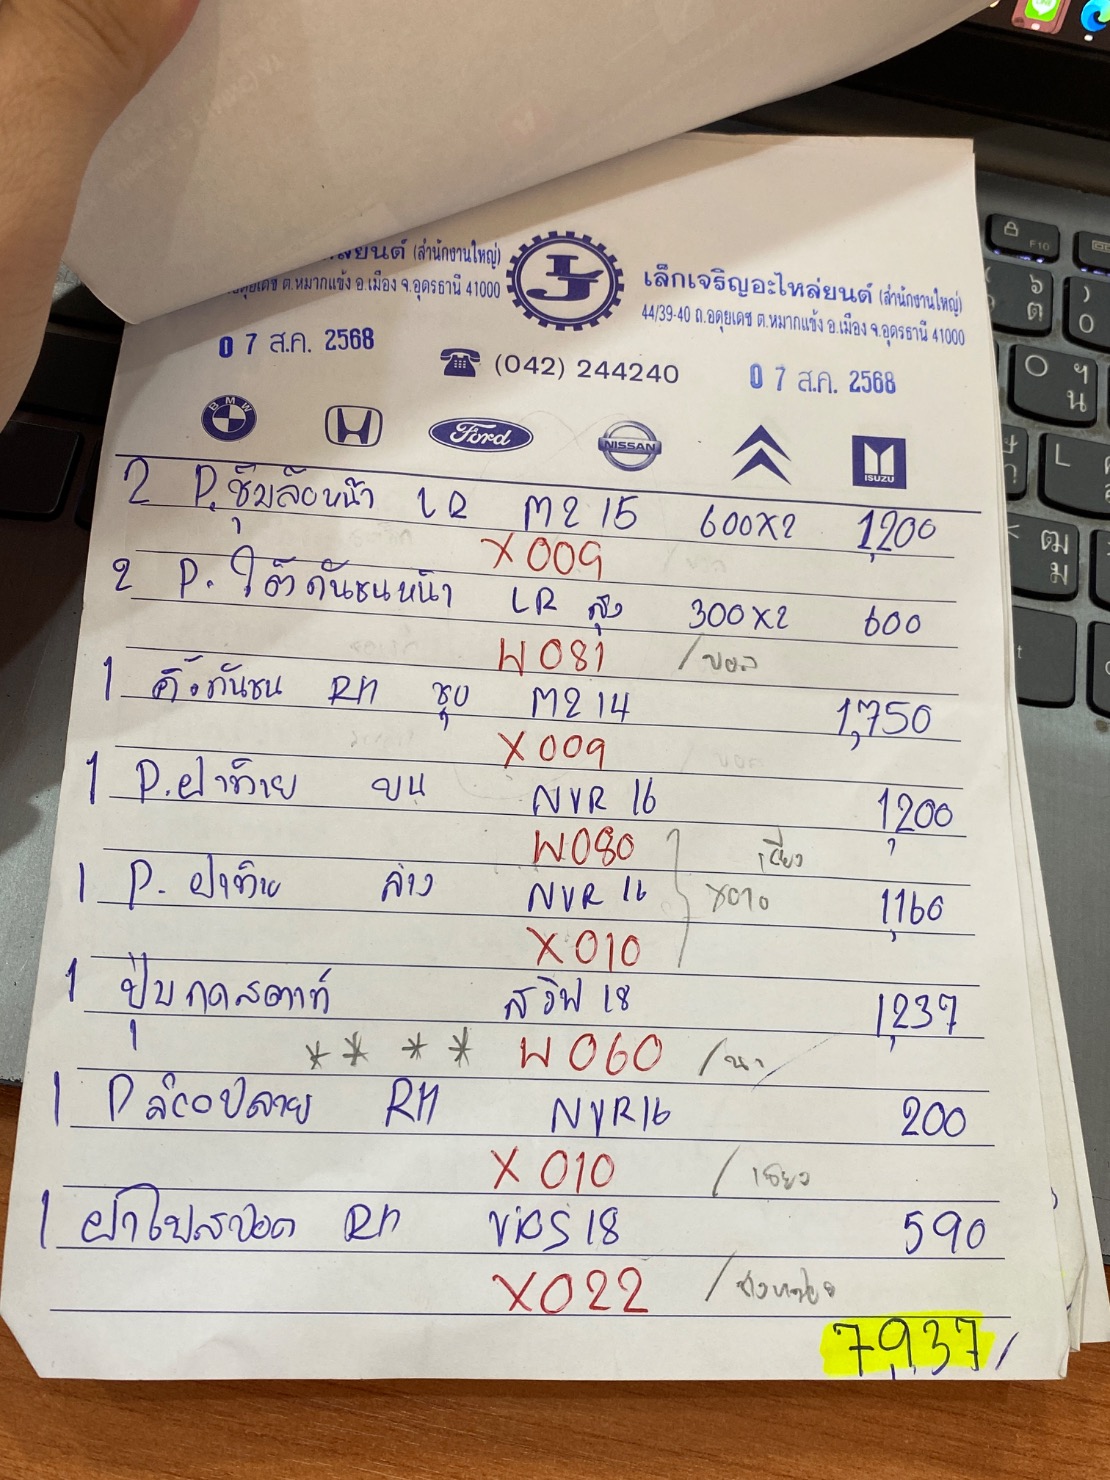 ไหล่ยนต์ (สำนักงานใหญ่)
.อดุยเดช ต.หมากแข้ง อ.เมือง จ.อุดรธานี 41000
เล็กเจริญอะไหล่ยนต์ (สำนักงานใหญ่)
44/39-40 ถ.อดุยเดช ต.หมากแข้ง อ.เมือง จ.อุดรธานี 41000
0 7 ส.ค. 2568
(042) 244240
0 7 ส.ค. 2568
BMW Ford NISSAN ISUZU
2 P.ซุ้มล้อหน้า LR M2 15 600X2 1,200
X009
2 P.ใต้กันชนหน้า LR สูง 300X2 600
W081 /บอล
1 คิ้วกันชน RH ชุบ M2 14 1,750
X009
1 P.ฝาท้าย บน NVR 16 1,200
W080
1 P.ฝาท้าย ล่าง NVR 16 X010 1,160
X010
1 ปุ่มกดสตาท์ สวิฟ 18 1,237
** ** W060 /นา
1 P RH NVR16 200
X010
1 ฝาไฟสปอต RH VIOS 18 590
X022
7,937/
F10